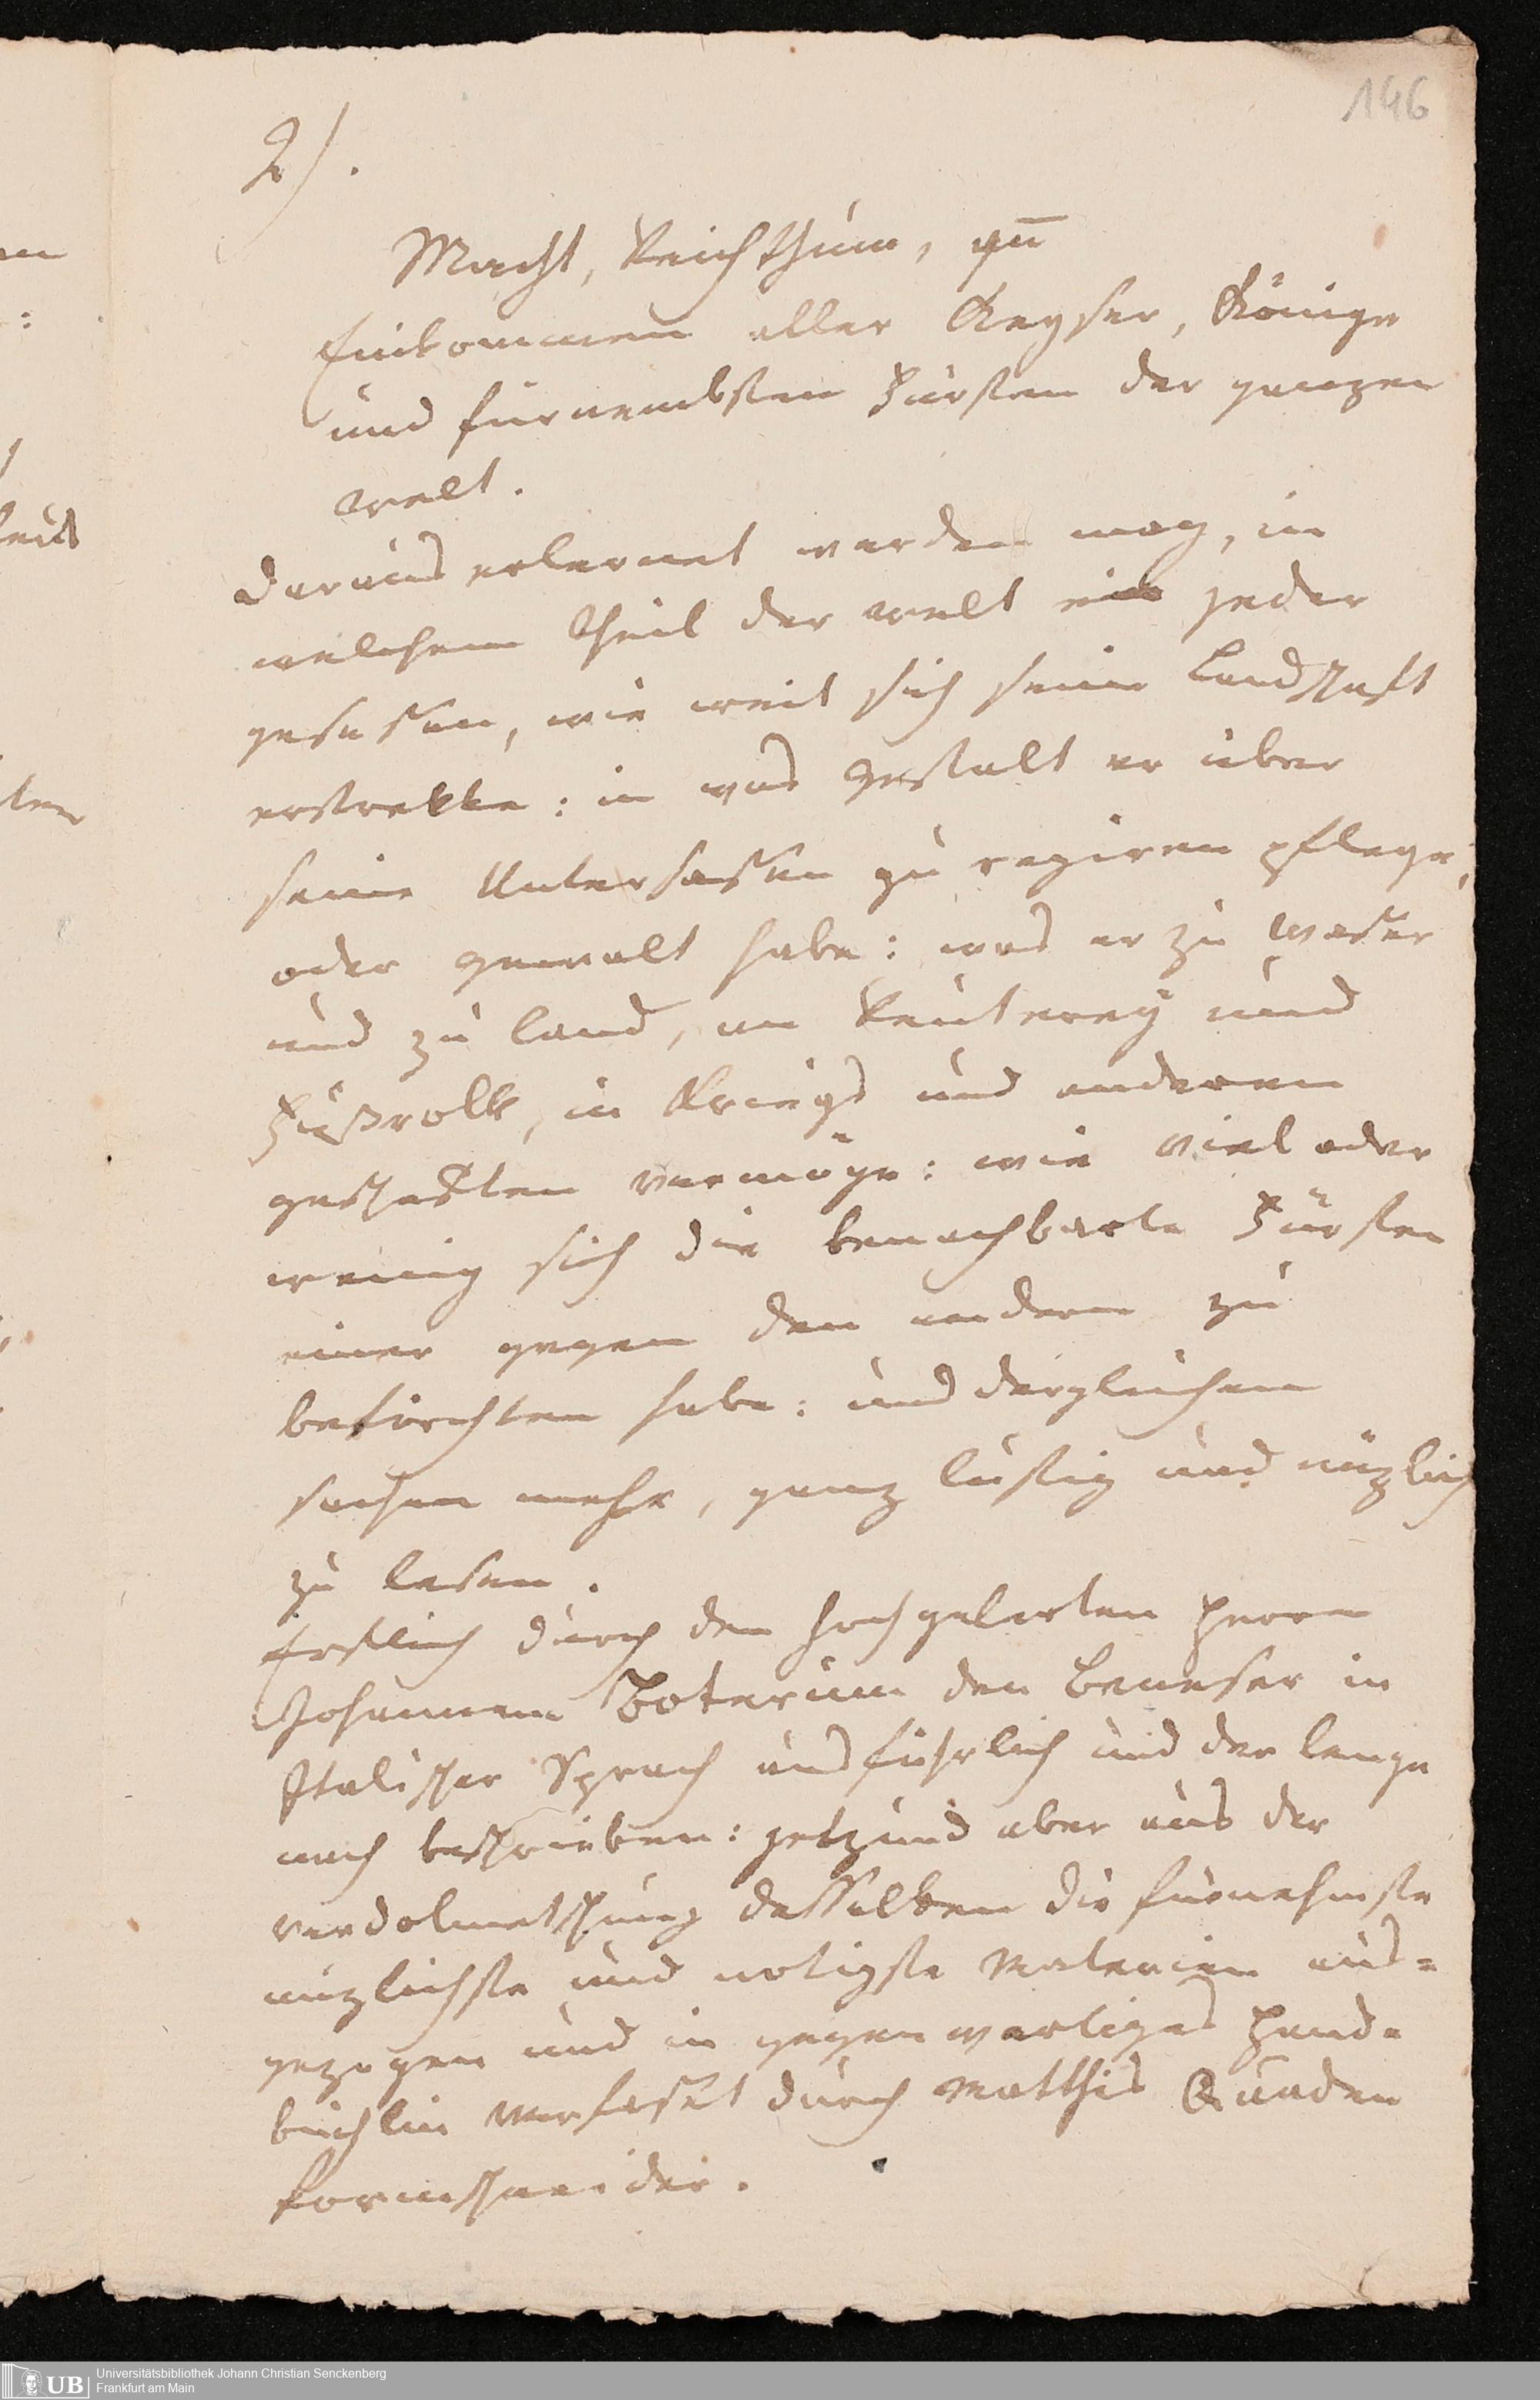 146
2).
Macht, Reichthum, uñ
Einkommen aller Keyser, Könige
und fürnembsten Fürsten der ganzen
welt.
daraus erlernet werden mag, in
welchem theil der welt ein jeder
gesessen, wie weit sich seine Landschaft
erstrekke: in was gestalt er über
seine Untersassen zu regiren pflege,
oder gewalt habe: was er zu Wasser
und zu land, an Reuterey und
Fußvolk, in Kriegs und anderen
geschäften vermöge: wie viel oder
wenig sich die benachbarte Fürsten
einer gegen den andern zu
beförchten habe: und dergleichen
sachen mehr, ganz lustig und nüzlich
zu lesen.
Erstlich durch den hochgelerten Herrn
Johannem Boterum den Beneser in
Italischer Sprach ausführlich und der lenge
nach beschrieben: jetzund aber aus der
verdolmetschung desselben die fürnehmste
nüzlichste und notigste Materien aus=
gezogen und in gegenwartiges Hand=
büchlin verfasset durch Matthis Quaden
formschneider.
Universitätsbibliothek Johann Christian Senckenberg
Frankfurt am Main
UB